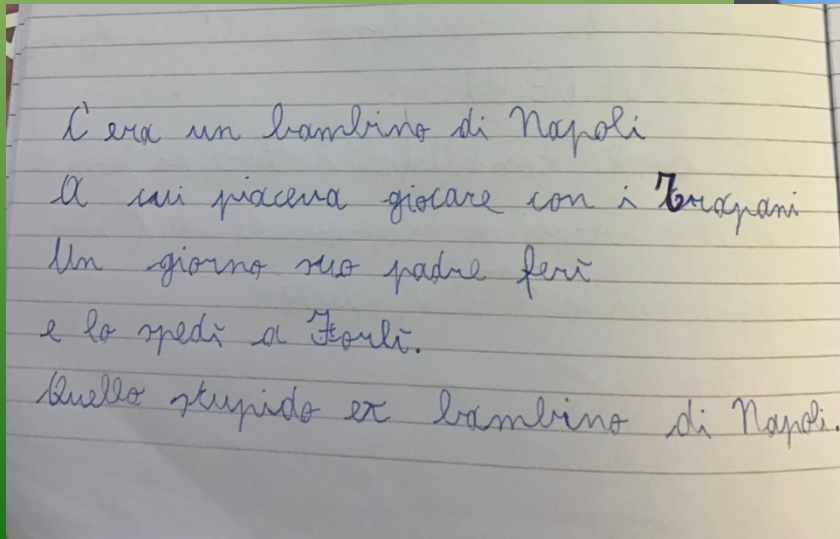 C'era un bambino di Napoli
A cui piaceva giocare con i Trapani
Un giorno suo padre ferì
e lo spedì a Forlì.
Quello stupido ex bambino di Napoli.